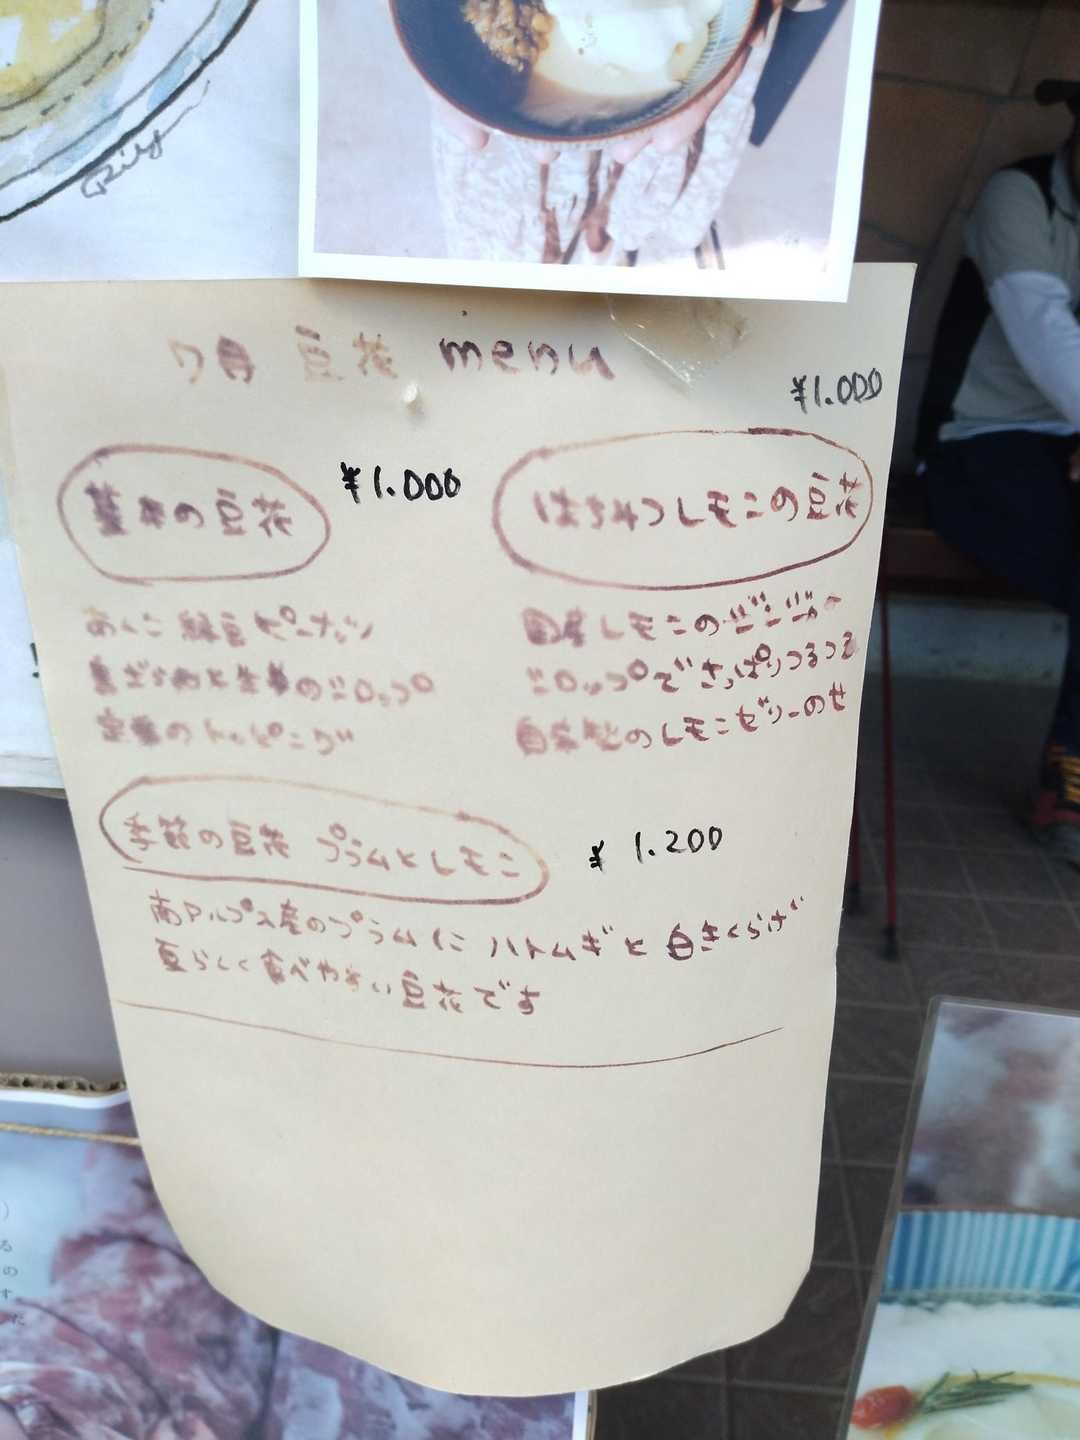 Rily
7月 豆花 menu
¥1.000
¥1.000
基本の豆花
はちみつレモンの豆花
あんこ 緑豆 ピーナッツ
黒ざとうと生姜のシロップ
定番のトッピング
国産レモンのジンジャー
シロップでさっぱりつるつる
自家製のレモンゼリーのせ
季節の豆花 プラムとレモン
¥1.200
南アルプス産のプラムに ハトムギと 白きくらげ
夏らしく食べやすい豆花です